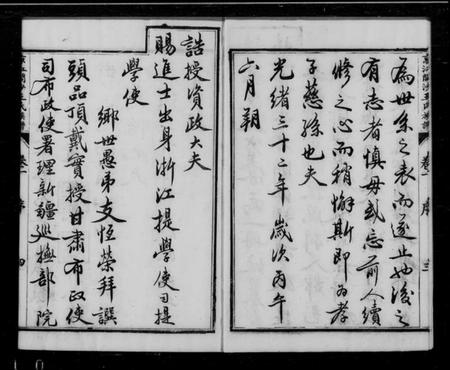 為世系之表而遂止也後之
有志者慎毋或忘前人續
修之心而稍懈斯即為孝
子慈孫也夫
光緒三十二年歲次丙午
六月朔
卷一 序 三
誥授資政大夫
賜進士出身浙江提學使司提
學使
鄉世愚弟支恆榮拜譔
頭品頂戴實授甘肅布政使
司布政使署理新疆巡撫部院
卷一 序 四